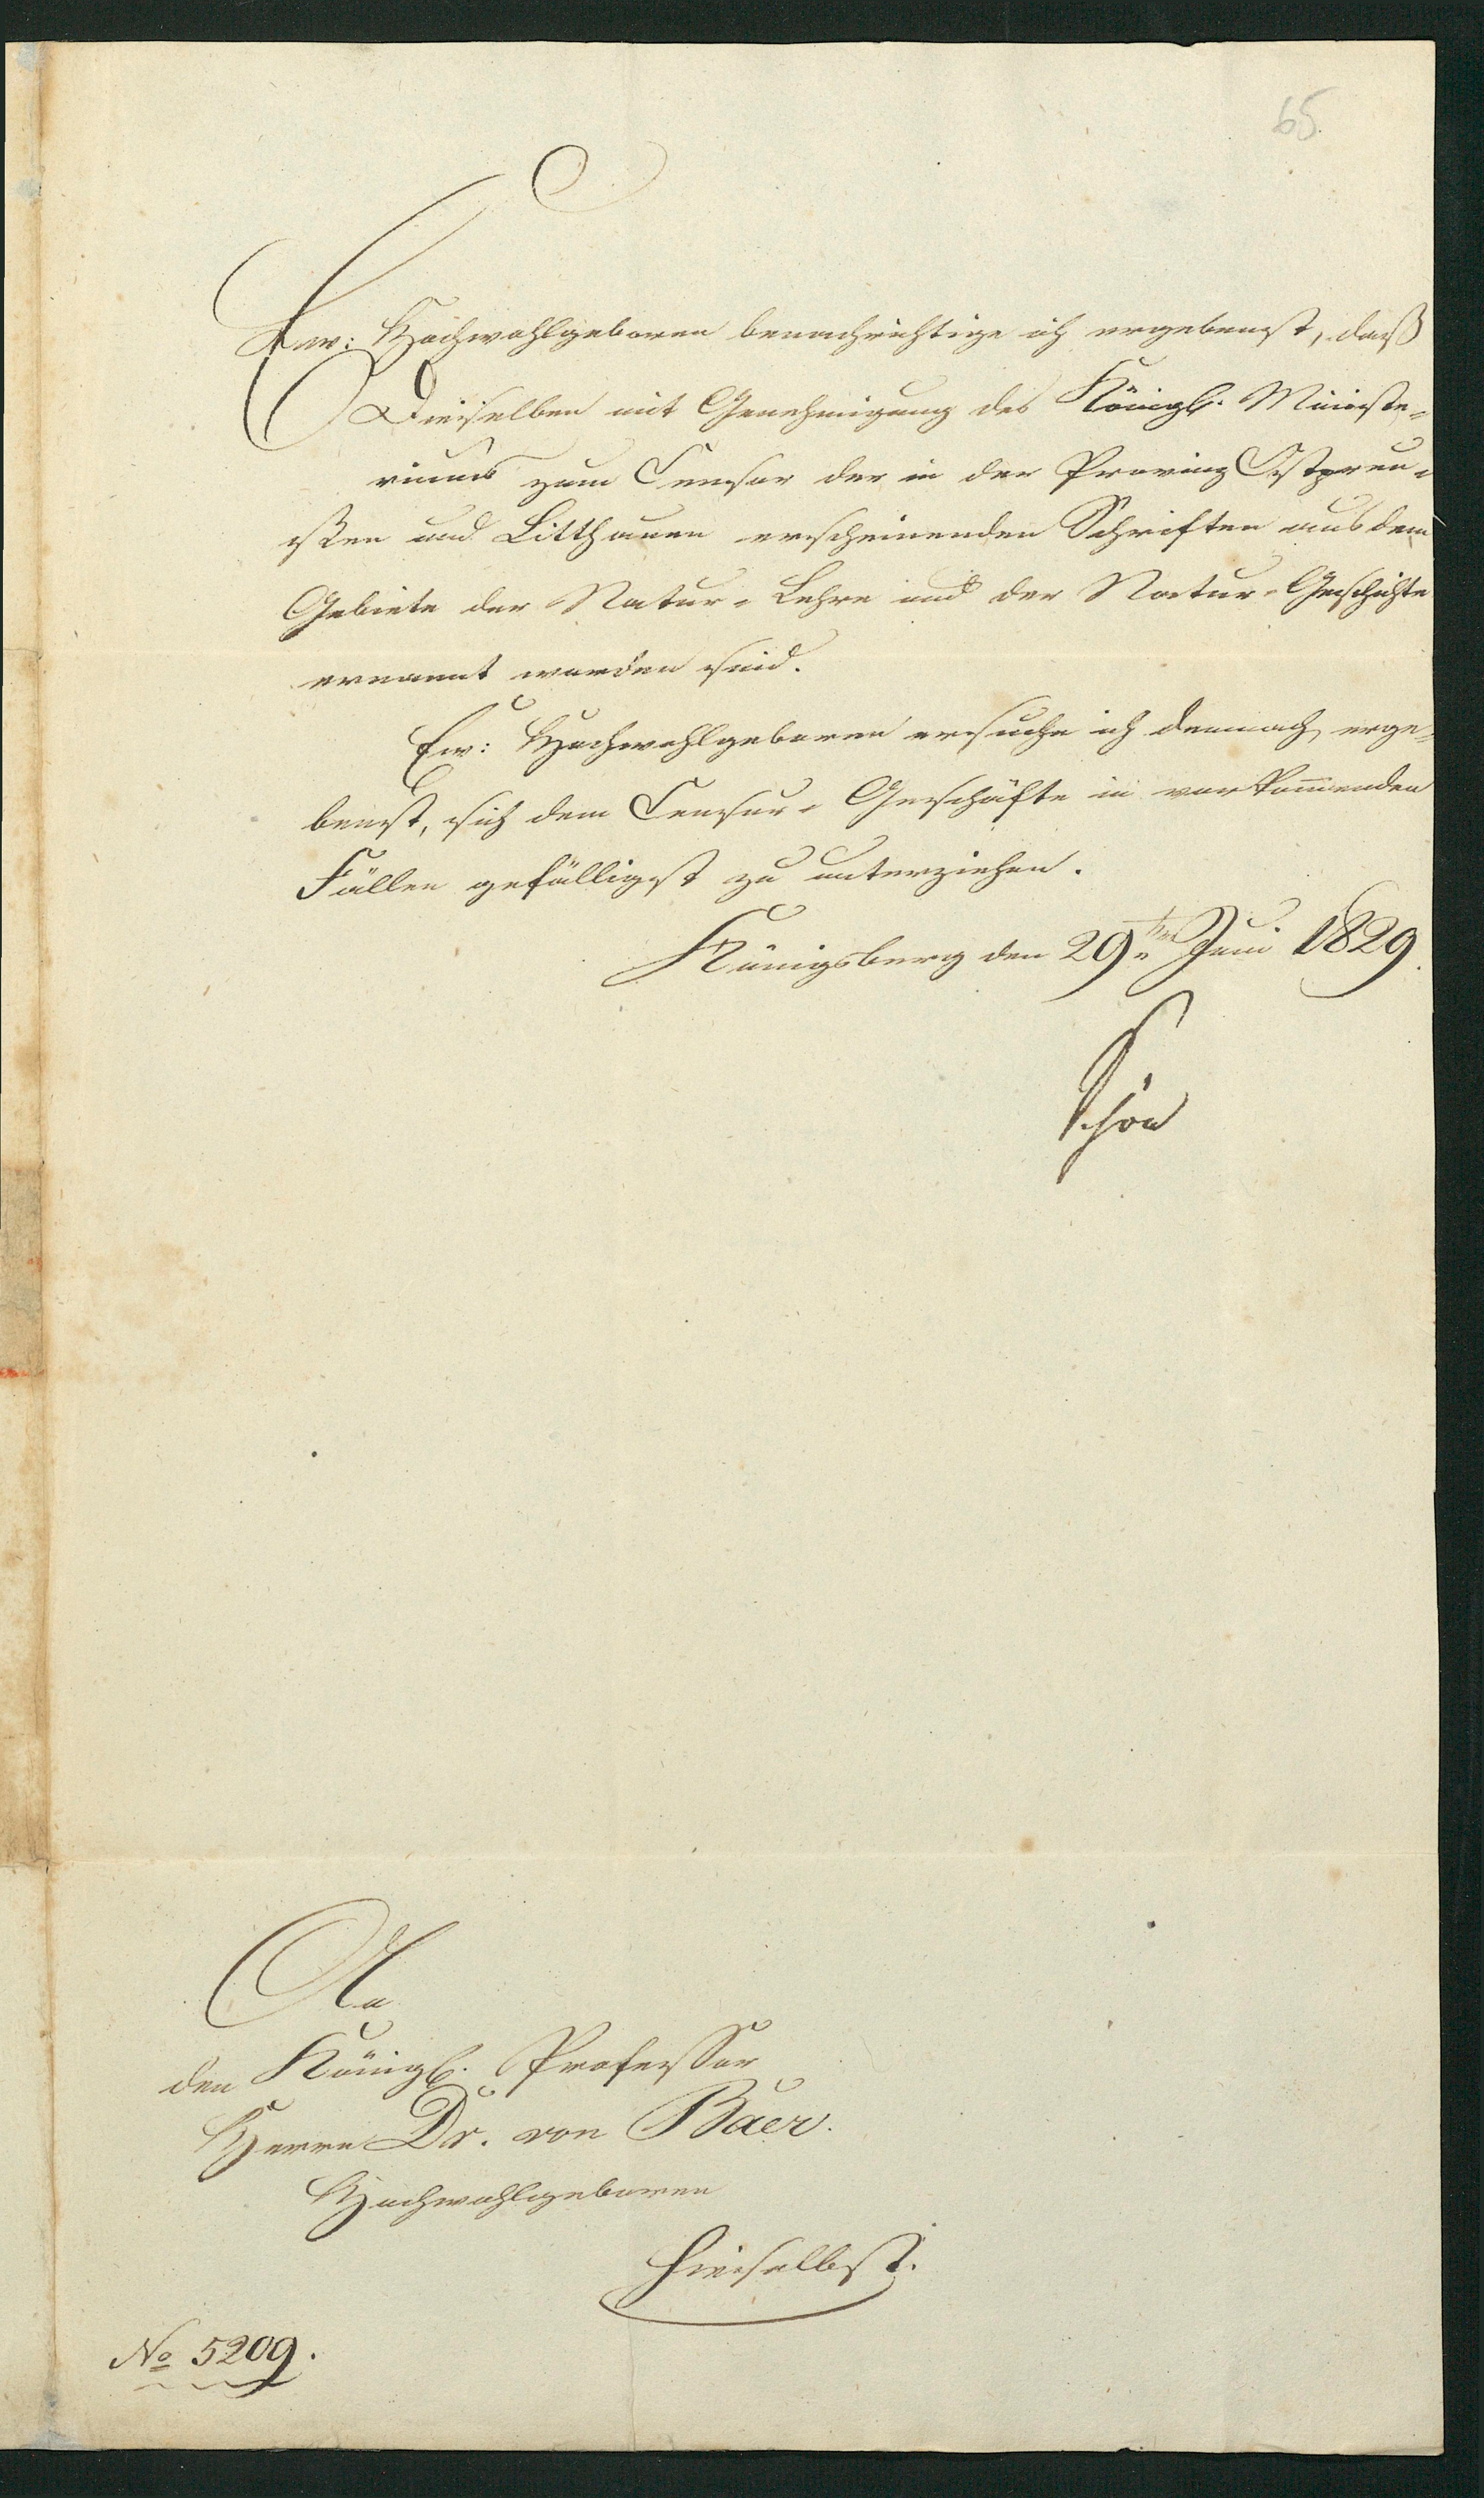 65.
Ew: Hochwohlgeboren benachrichtige ich ergebenst, daß
Dieselben mit Genehmigung des Königl. Ministe-
riums zum Censor der in der Provinz Ostpreu-
ßen und Litthauen erscheinenden Schriften aus dem
Gebiete der Natur-Lehre und der Natur-Geschichte
ernannt worden sind.
Ew: Hochwohlgeboren ersuche ich demnach, erge-
benst, sich dem Censur-Geschäfte in vorkom̄enden
Fällen gefälligst zu unterziehen.
Königsberg den 29ten Juni 1829.
Schön
An
den Königl. Professor
Herrn Dr. von Baer.
Hochwohlgeboren
hieselbst.
No 5209.